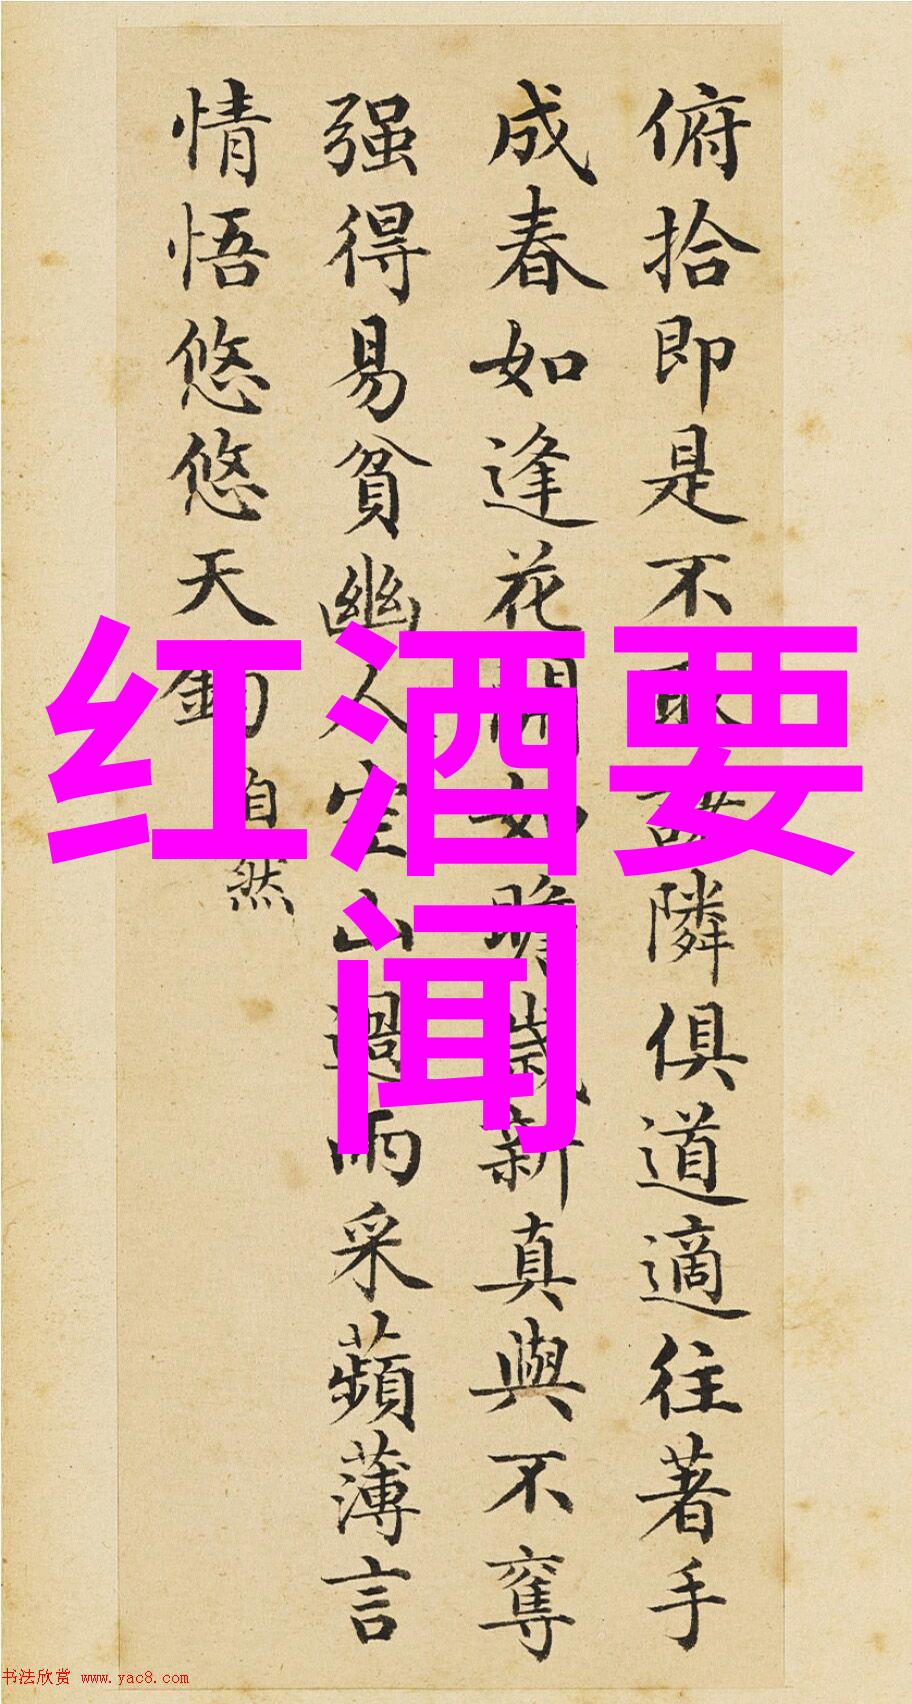 俯拾即是不取諸隣俱道適往著手
成春如逢花開如瞻歲新真與不奪
强得易貧幽人空山過雨采蘋薄言
情悟悠悠天鈞
自然
红酒要
闻
书法欣赏 www.yac8.com